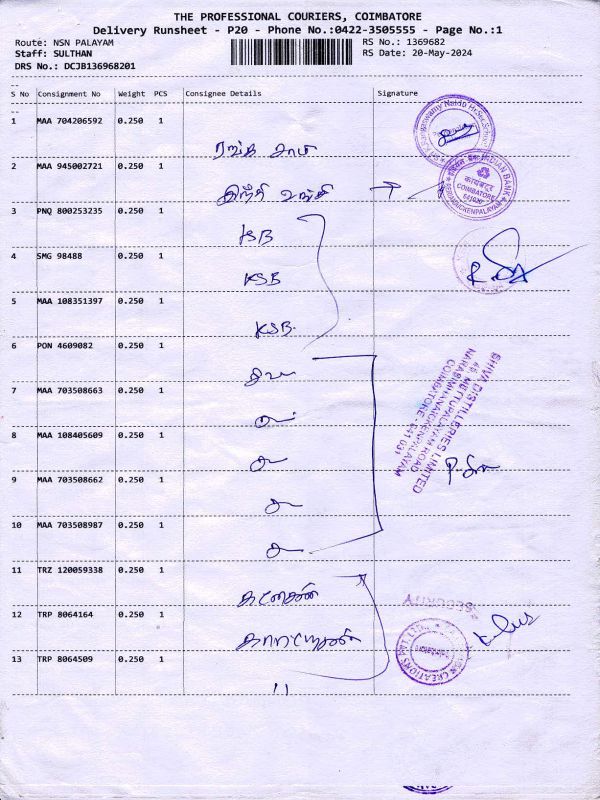 THE PROFESSIONAL COURIERS, COIMBATORE
Delivery Runsheet - P20 - Phone No.:0422-3505555 - Page No.:1
Route: NSN PALAYAM
RS No.: 1369682
Staff: SULTHAN
RS Date: 20-May-2024
DRS No.: DCJB136968201
S No Consignment No Weight PCS Consignee Details Signature
1 MAA 704206592 0.250 1
2 MAA 945002721 0.250 1
INDIAN BANK
COIMBATORE
3 PNQ 800253235 0.250 1 KSB
4 SMG 98488 0.250 1 KSB
5 MAA 108351397 0.250 1 KSB.
6 PON 4609082 0.250 1
7 MAA 703508663 0.250 1
8 MAA 108405609 0.250 1
9 MAA 703508662 0.250 1
10 MAA 703508987 0.250 1
SHIVA DISTILLERIES LIMITED
METTUPALAYAM ROAD
COIMBATORE - 641 031
11 TRZ 120059338 0.250 1 கணேசன்
SECURITY
12 TRP 8064164 0.250 1
13 TRP 8064509 0.250 1 11